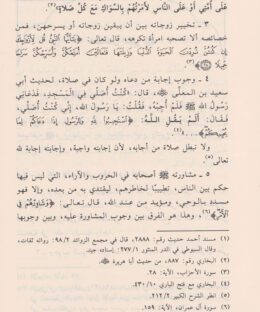 عَلَى أُمَّتِي أَوْ عَلَى النَّاسِ لَأَمَرْتُهُمْ بِالسِّوَاكِ مَعَ كُلِّ صَلَاةٍ»(٢).
٣ ـ تخيير زوجاته بين أن يبقين زوجاته أو يسرحهن، فمن
خصائصه ألا تصحبه امرأة تكرهه، قال تعالى: ﴿يَٰٓأَيُّهَا ٱلنَّبِىُّ قُل لِّأَزْوَٰجِكَ
إِن كُنتُنَّ تُرِدْنَ ٱلْحَيَوٰةَ ٱلدُّنْيَا وَزِينَتَهَا فَتَعَالَيْنَ أُمَتِّعْكُنَّ وَأُسَرِّحْكُنَّ سَرَاحًا
جَمِيلًا﴾(٣).
٤ ـ وجوب إجابة من دعاه ولو كان في صلاة، لحديث أبي
سعيد بن المعلى، قال: «كُنْتُ أُصَلِّي فِي الْمَسْجِدِ، فَدَعَانِي
رَسُولُ اللهِ ﷺ فَلَمْ أُجِبْهُ، فَقُلْتُ: يَا رَسُولَ اللهِ، إِنِّي كُنْتُ أُصَلِّي،
فَقَالَ: أَلَمْ يَقُلِ اللَّهُ: ﴿ٱسْتَجِيبُوا۟ لِلَّهِ وَلِلرَّسُولِ إِذَا دَعَاكُمْ لِمَا
يُحْيِيكُمْ﴾...»(٤).
ولا تبطل صلاة من أجابه، لأن إجابته واجبة، وإجابته إجابة لله
تعالى(٥).
٥ ـ مشاورته ﷺ أصحابه في الحروب والآراء، التي ليس فيها
حكم بين الناس، تطييبًا لخاطرهم، ليقتدي به من بعده، وإلا فهو
مسدد بالوحي، ومؤيد من عند الله، قال تعالى: ﴿وَشَاوِرْهُمْ فِى
ٱلْأَمْرِ﴾(٦)، وهذا هو الفرق بين وجوب المشاورة عليه، وبين وجوبها
(١) مسند أحمد حديث رقم: ٢٨٨٨، قال في مجمع الزوائد ٩٨/٢: رواته ثقات،
وقال السيوطي في الدر المنثور ٢٧٧/١: إسناده جيد.
(٢) البخاري رقم: ٨٨٧، من حديث أبي هريرة ﵁.
(٣) سورة الأحزاب، الآية: ٢٨.
(٤) البخاري مع فتح الباري ٤٣٠/١٠.
(٥) انظر الشرح الكبير ٢١٢/٢.
(٦) سورة آل عمران، الآية: ١٥٩.